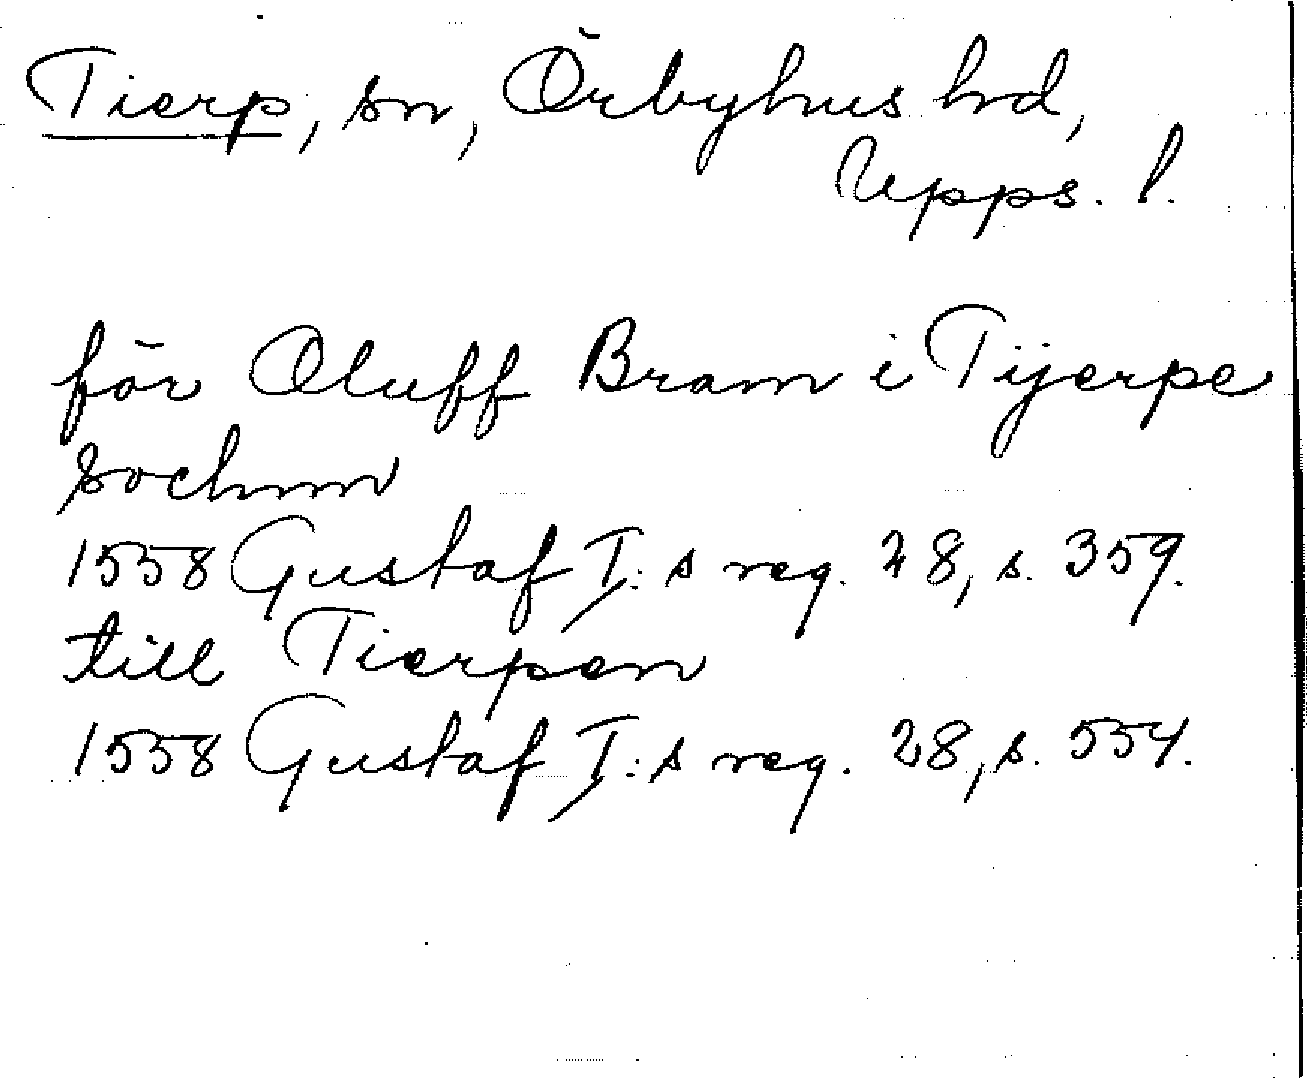 Tierp, sn, Örbyhus hd,
Upps. l.
för Oluff Bram i Tijerpe
sochnn
1558 Gustaf I:s reg. 28, s. 359.
till Tierpen
1558 Gustaf I:s reg. 28, s. 554.